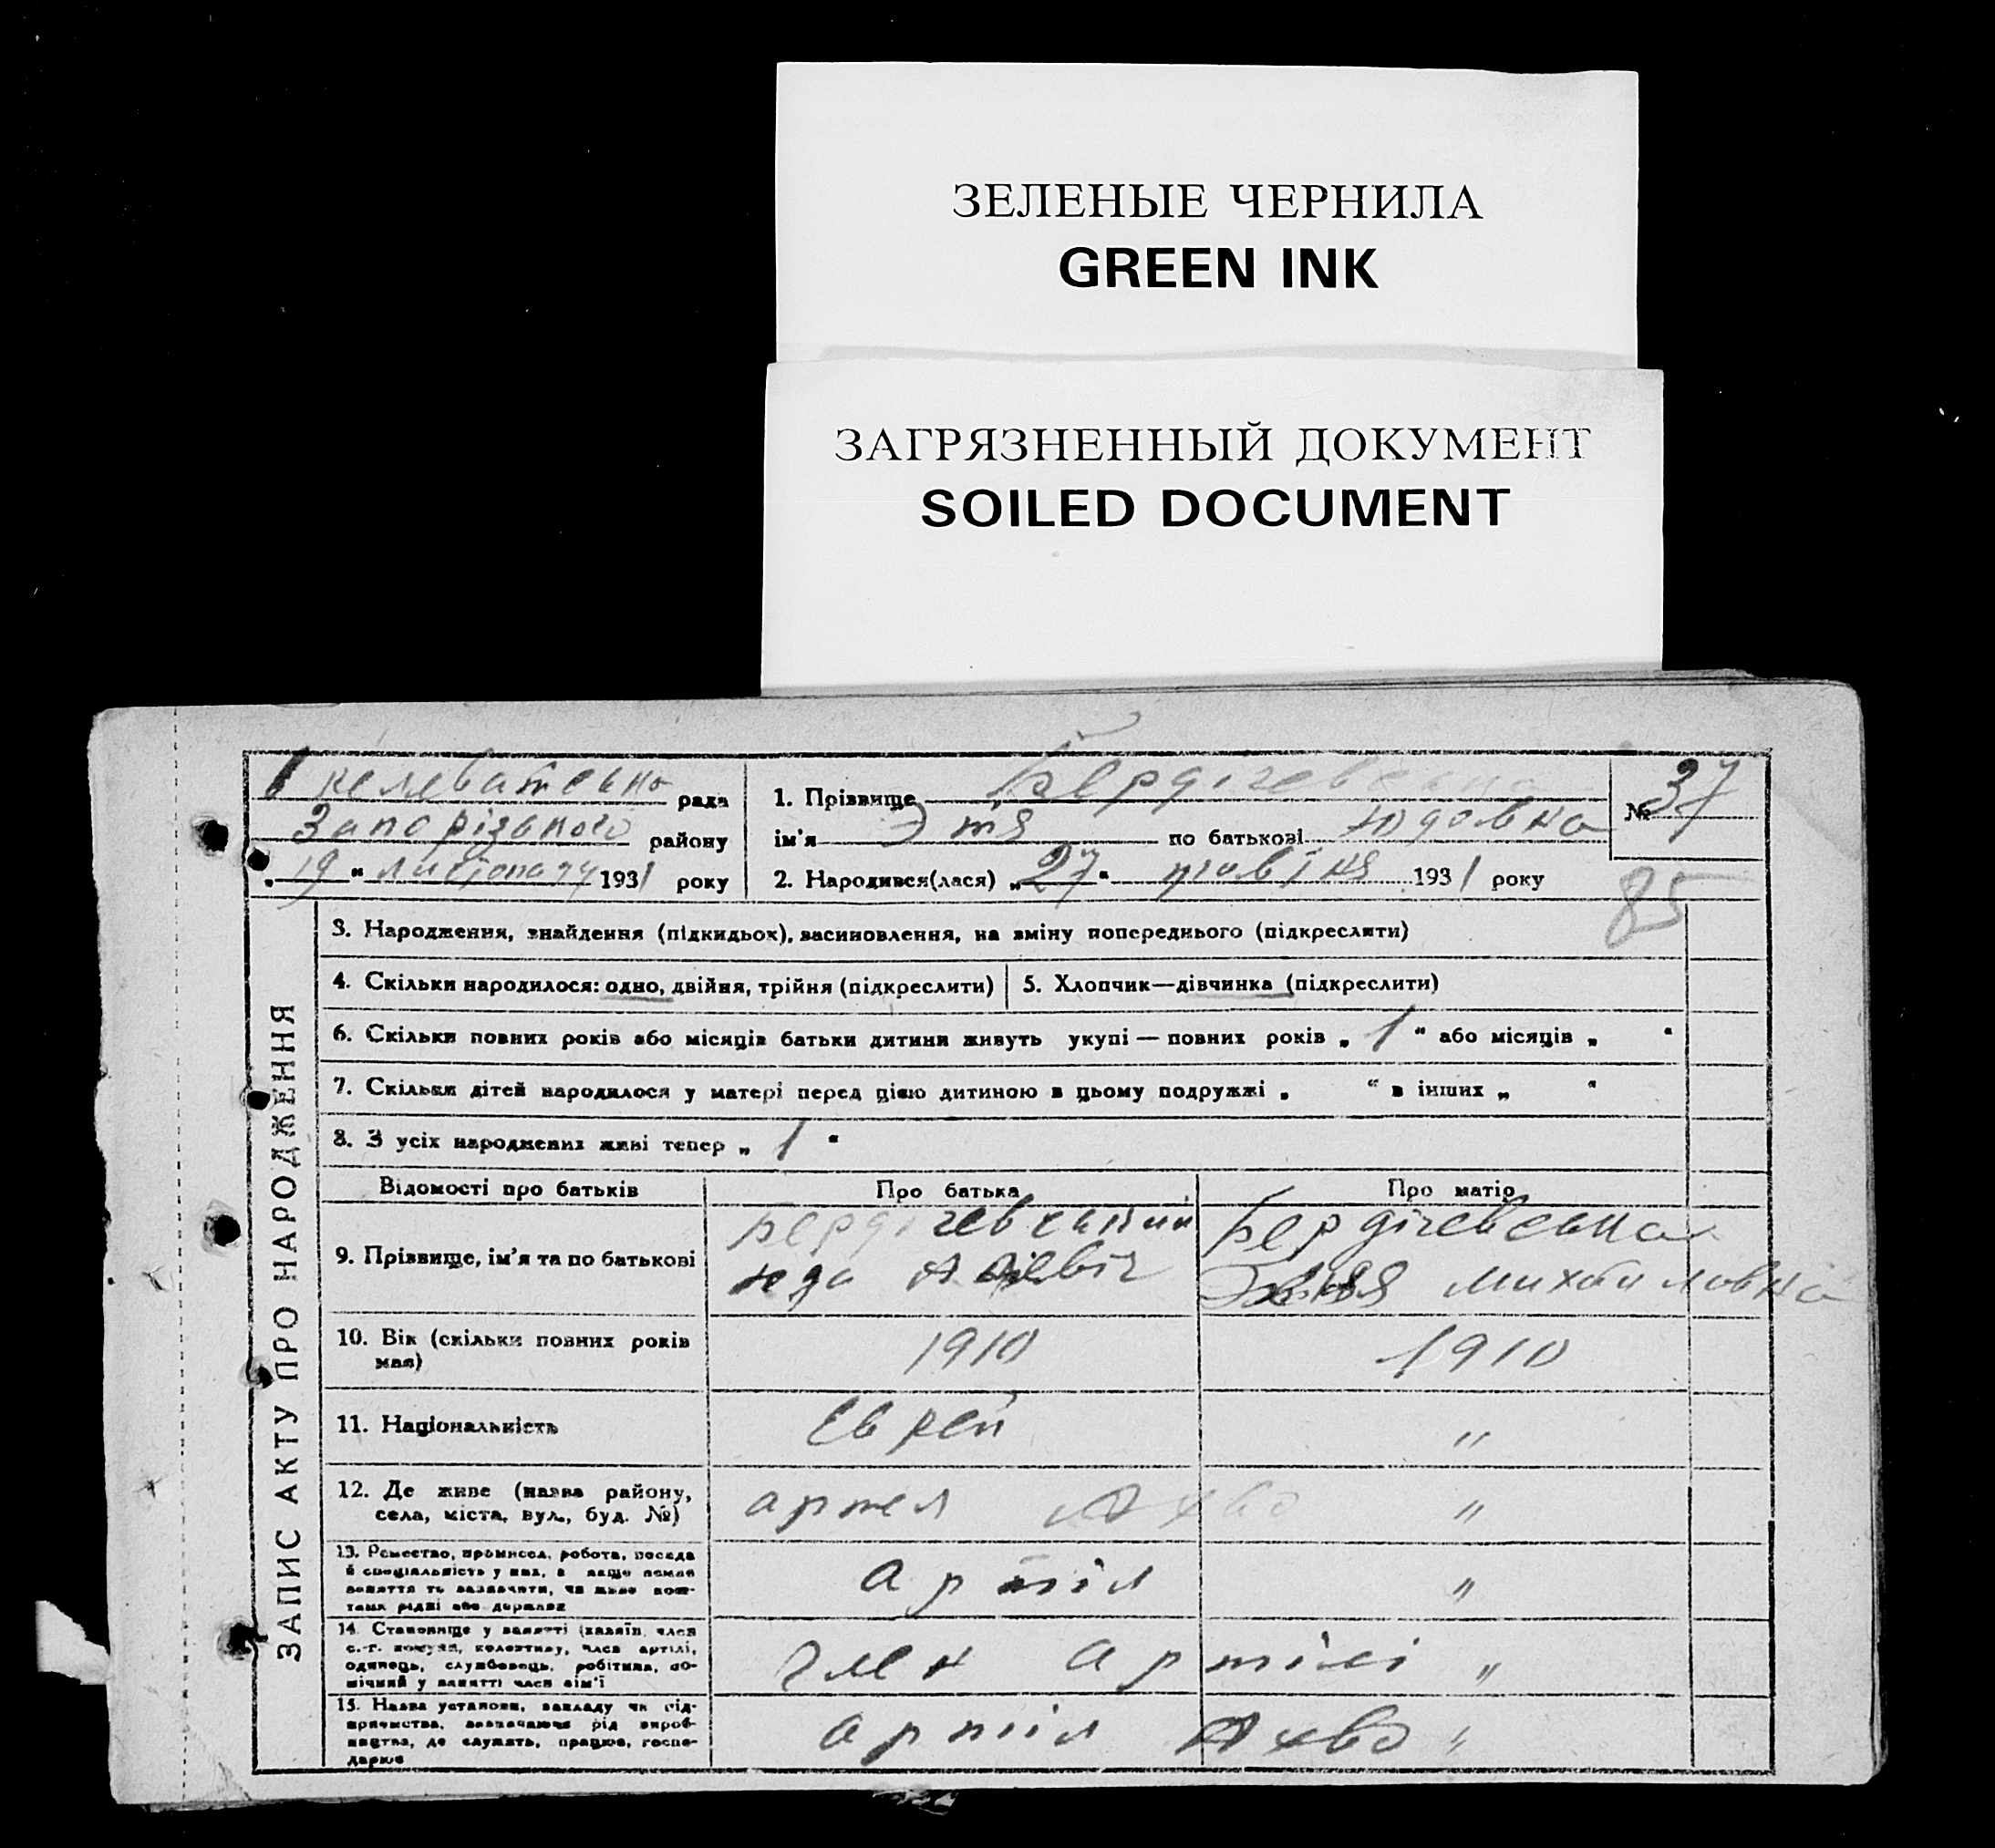 ЗЕЛЕНЫЕ ЧЕРНИЛА
GREEN INK
ЗАГРЯЗНЕННЫЙ ДОКУМЕНТ
SOILED DOCUMENT
рада
Запорізького району
„ 19 “ листопаду 1931 року
1. Прізвище Бердічевська
ім'я Этя по батькові Юдовна
2. Народився(лася) „ 27 “ 1931 року
№ 37
85
ЗАПИС АКТУ ПРО НАРОДЖЕННЯ
3. Народження, знайдення (підкидьох), засиновлення, на зміну попереднього (підкреслити)
4. Скільки народилося: одно, двійня, трійня (підкреслити)
5. Хлопчик—дівчинка (підкреслити)
6. Скільки повних років або місяців батьки дитини живуть укупі — повних років „ 1 “ або місяців „ “
7. Скільки дітей народилося у матері перед цією дитиною в цьому подружжі „ “ в інших „ “
8. З усіх народжених живі тепер „ 1 “
Відомості про батьків
Про батька
Про матір
9. Прізвище, ім'я та по батькові
Бердічевський
Юда
Бердічевська
Михайловна
10. Вік (скільки повних років має)
1910
1910
11. Національність
Еврей
"
12. Де живе (назва району,
села, міста, вул., буд. №)
артел Ахво
"
13. Ремество, промисел, робота, посада
й спеціальність у них, а якщо немає
заняття то зазначити, чи живе кош-
тами рідні або держави
артіл
"
14. Становище у занятті (хазяїн, член
с.-г. комуни, колективу, член артілі,
одинець, службовець, робітник, до-
мічний у занятті член сім'ї
член артілі "
15. Назва установи, закладу чи під-
приємства, зазначаючи рід вироб-
ництва, де служать, працює, госпо-
дарює
артіл Ахво "